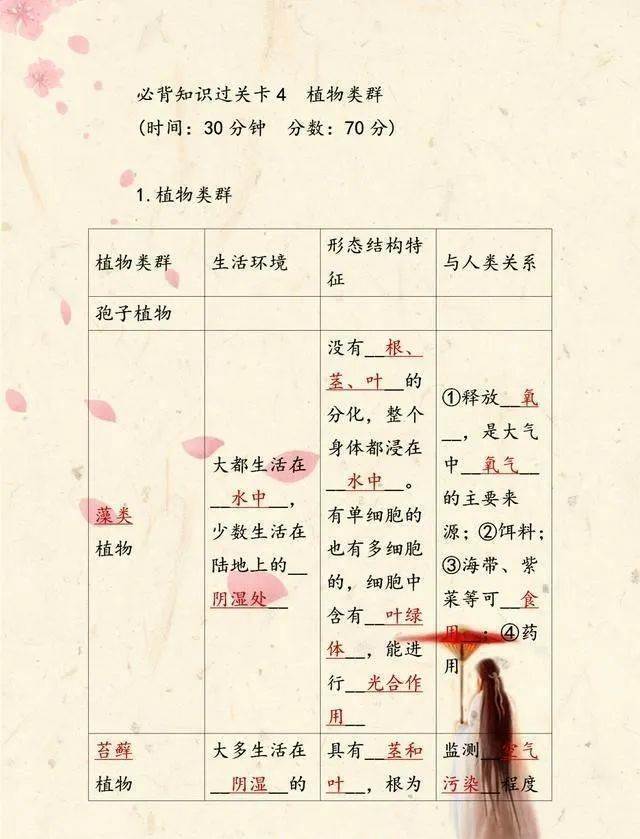 必背知识过关卡4 植物类群
(时间：30分钟 分数：70分)
1.植物类群
植物类群
生活环境
形态结构特
征
与人类关系
孢子植物
藻类
植物
大都生活在
__水中__，
少数生活在
陆地上的__
阴湿处__
没有__根、
茎、叶__的
分化，整个
身体都浸在
__水中__。
有单细胞的
也有多细胞
的，细胞中
含有__叶绿
体__，能进
行__光合作
用__
①释放__氧
__，是大气
中__氧气__
的主要来
源；②饵料；
③海带、紫
菜等可__食
用__；④药
用
苔藓
植物
大多生活在
__阴湿__的
具有__茎和
叶__，根为
监测__空气
污染__程度